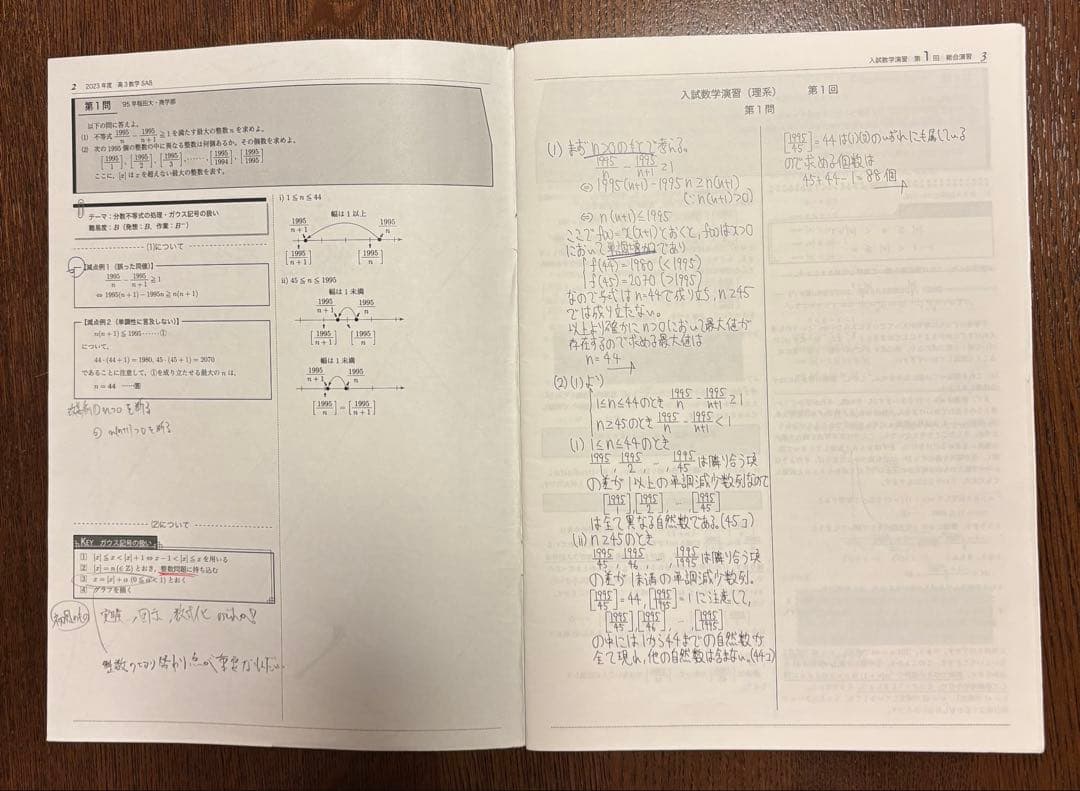 2 2023年度 高3数学SAS
第1問 '95 早稲田大・商学部
以下の問に答えよ。
(1) 不等式 1995/n − 1995/(n+1) ≧ 1 を満たす最大の整数 n を求めよ。
(2) 次の1995個の整数の中に異なる整数は何個あるか。その個数を求めよ。
[1995/1], [1995/2], [1995/3], ……, [1995/1994], [1995/1995]
ここに、[x] は x を超えない最大の整数を表す。
テーマ：分数不等式の処理・ガウス記号の扱い
難易度：B（発想：B、作業：B⁻）
(1)について
【減点例1（誤った同値）】
1995/n − 1995/(n+1) ≧ 1
⇔ 1995(n+1) − 1995n ≧ n(n+1)
【減点例2（単調性に言及しない）】
n(n+1) ≦ 1995 ……①
について、
44·(44+1) = 1980, 45·(45+1) = 2070
であることに注意して、①を成り立たせる最大の n は、
n = 44 ──答
n>0 を断る
n(n+1)>0 を断る
(2)について
KEY ガウス記号の扱い
1 [x] ≦ x < [x]+1 ⇔ x−1 < [x] ≦ x を用いる
2 [x] = n(∈Z) とおき、整数問題に持ち込む
3 x = [x]+α (0≦α<1) とおく
4 グラフを描く
実験、図示、数式化
整数の切り替わり点が重要
i) 1 ≦ n ≦ 44
幅は1以上
1995/(n+1) 1995/n
[1995/(n+1)] [1995/n]
ii) 45 ≦ n ≦ 1995
幅は1未満
1995/(n+1) 1995/n
[1995/(n+1)] [1995/n]
幅は1未満
1995/(n+1) 1995/n
[1995/n] = [1995/(n+1)]
入試数学演習 第1回 総合演習 3
入試数学演習（理系） 第1回
第1問
(1) まず n>0のもとで考える。
1995/n − 1995/(n+1) ≧ 1
⇔ 1995(n+1)−1995n ≧ n(n+1)
(∵n(n+1)>0)
⇔ n(n+1)≦1995
ここで f(x)=x(x+1)とおくと、f(x)はx>0
において単調増加であり
f(44)=1980 (<1995)
f(45)=2070 (>1995)
なので与式は n=44で成り立ち、n≧45
では成り立たない。
以上より確かに n>0において最大値が
存在するので求める最大値は
n=44
(2) (1)より
1≦n≦44のとき 1995/n − 1995/(n+1) ≧1
n≧45のとき 1995/n − 1995/(n+1) <1
(i) 1≦n≦44のとき
1995/1, 1995/2, …, 1995/45 は隣り合う項
の差が1以上の単調減少数列なので
[1995/1],[1995/2] … [1995/45]
は全て異なる自然数である。(45コ)
(ii) n≧45のとき
1995/45, 1995/46, …, 1995/1995 は隣り合う項
の差が1未満の単調減少数列。
[1995/45]=44, [1995/1995]=1に注意して、
[1995/45],[1995/46] … [1995/1995]
の中には1から44までの自然数が
全て現れ、他の自然数は含まない。(44コ)
[1995/45]=44は(i)(ii)のいずれにも属している
ので求める個数は
45+44−1=88個